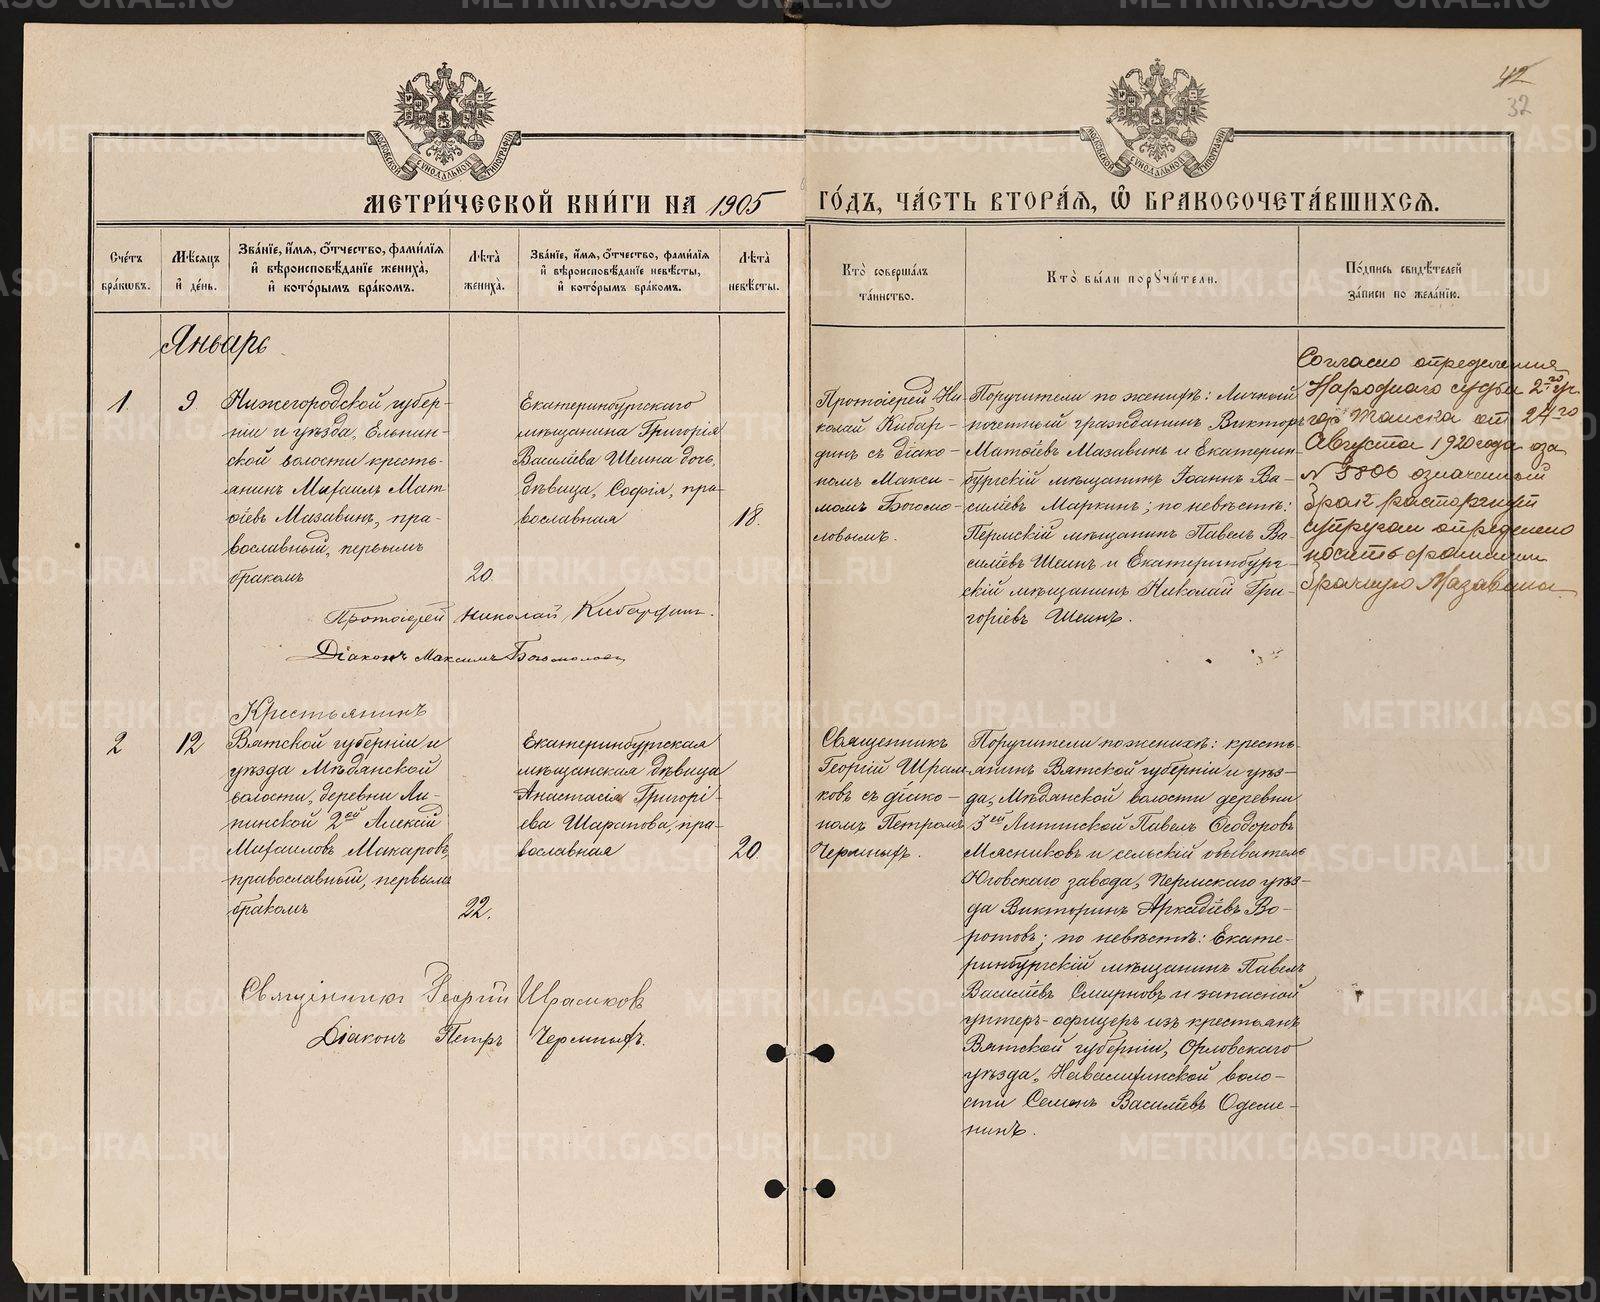 42
32
МОСКОВСКОЙ СѴНОДАЛЬНОЙ ТИПОГРАФІИ
МОСКОВСКОЙ СѴНОДАЛЬНОЙ ТИПОГРАФІИ
МЕТРИ́ЧЕСКОЙ КНИ́ГИ НА 1905 ГО́ДЪ, ЧА́СТЬ ВТОРА́Я, Ѡ҆ БРАКОСОЧЕТА́ВШИХСѦ.
Сче́тъ
бра́кѡвъ.
Мѣ́сяцъ
и҆ де́нь.
Зва́нїе, и҆́мѧ, ѻ҆́тчество, фами́лїѧ
и҆ вѣроисповѣ́данїе жениха̀,
и҆ кото́рымъ бра́комъ.
Лѣ́та
жениха̀.
Зва́нїе, и҆́мѧ, ѻ҆́тчество, фами́лїѧ
и҆ вѣроисповѣ́данїе невѣ́сты,
и҆ кото́рымъ бра́комъ.
Лѣ́та
невѣ́сты.
Кто̀ соверша́лъ
та́инство.
Кто̀ бы́ли порꙋчи́тели.
По́дпись свидѣ́телей
за́писи по жела́нїю.
Январь
1.
9.
Нижегородской губер-
ніи и уѣзда, Ельнин-
ской волости кресть-
янинъ Михаилъ Мат-
ѳіевъ Мазавинъ, пра-
вославный, первымъ
бракомъ
20.
Екатеринбургскаго
мѣщанина Григорія
Васильева Шеина дочь,
дѣвица, Софія, пра-
вославная
18.
Протоіерей Николай Кибардинъ.
Діаконъ Максимъ Богомоловъ
Протоіерей Ни-
колай Кибар-
динъ съ діако-
номъ Макси-
момъ Богомо-
ловымъ.
Поручители по женихѣ: Личный
почетный гражданинъ Викторъ
Матѳіевъ Мазавинъ и Екатерин-
бургскій мѣщанинъ Іоаннъ Ва-
силіевъ Маркинъ; по невѣстѣ:
Пермскій мѣщанинъ Павелъ Ва-
силіевъ Шеинъ и Екатеринбург-
скій мѣщанинъ Николай Гри-
горіевъ Шеинъ.
Согласно определения
Народнаго судьи 2го уч.
гор Томска от 24го
Августа 1920 года за
N 3806 означенный
брак расторгнут
супругам определено
носить фамилии
брачную Мазавина
2
12
Крестьянинъ
Вятской губерніи и
уѣзда Мѣдянской
волости, деревни Ли-
пинской 2ой Алексій
Михаиловъ Макаровъ,
православный, первымъ
бракомъ
22.
Екатеринбургская
мѣщанская дѣвица
Анастасія Григорі-
ева Шарапова, пра-
вославная
20.
Священникъ Георгій Шрамковъ
Діаконъ Петръ Чермныхъ.
Священникъ
Георгій Шрам-
ковъ съ діако-
номъ Петромъ
Чермныхъ.
Поручители по женихѣ: кресть-
янинъ Вятской губерніи и уѣз-
да, Мѣдянской волости деревни
3ей Липинской Павелъ Ѳеодоровъ
Мясниковъ и сельскій обыватель
Юговскаго завода, Пермскаго уѣз-
да Викторинъ Аркадіевъ Во-
ротовъ; по невѣстѣ: Екате-
ринбургскій мѣщанинъ Павелъ
Василіевъ Смирновъ и запасной
унтеръ-офицеръ изъ крестьянъ
Вятской губерніи, Орловскаго
уѣзда,
воло-
сти Семенъ Василіевъ Одеме-
нинъ.
METRIKI.GASO-URAL.RU